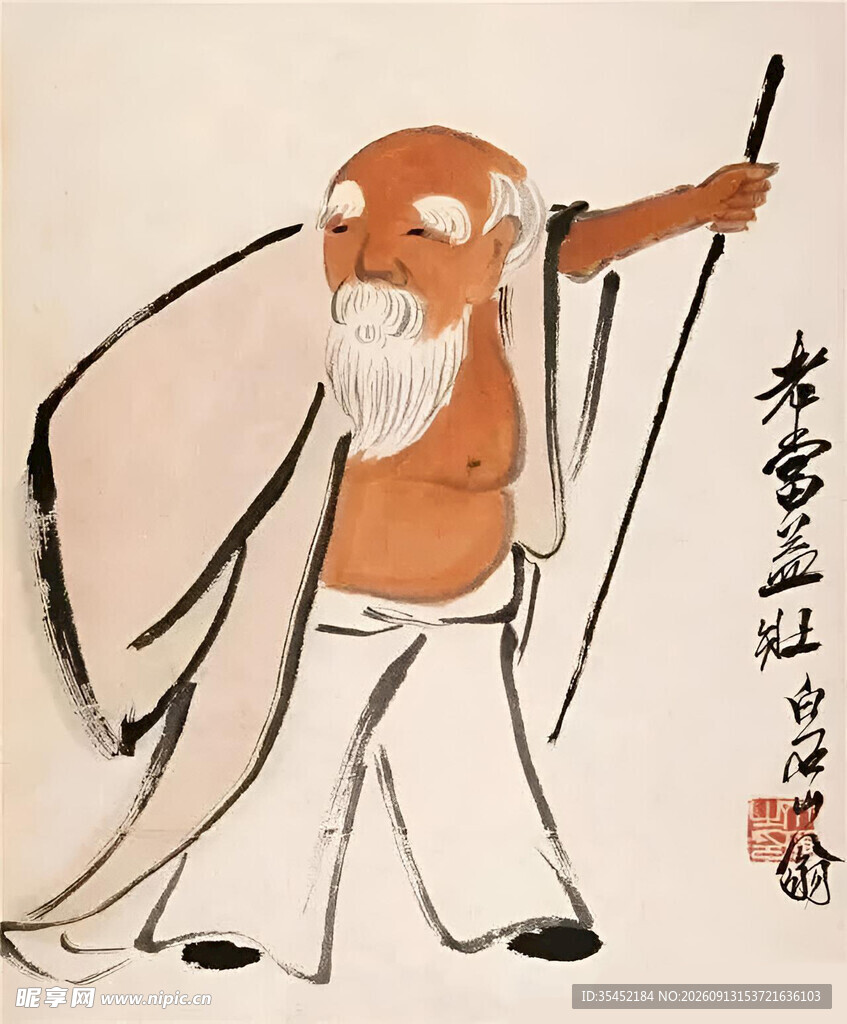 老當益壯
白石山翁
昵享网 www.nipic.cn
ID:35452184 NO:20260913153721636103